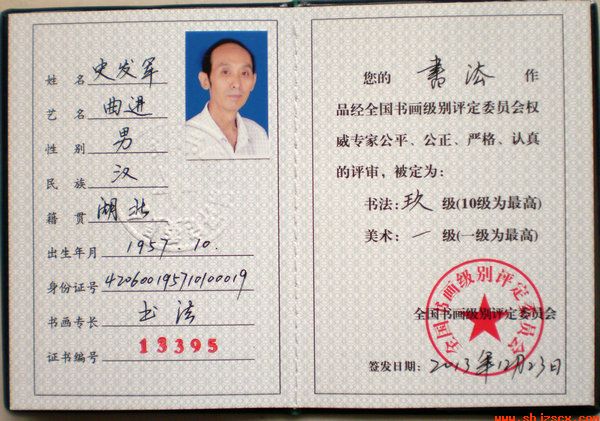 姓名 史发军
艺名 曲进
性别 男
民族 汉
籍贯 湖北
出生年月 1957.10.
身份证号 420600195710100019
书画专长 书法
证书编号 13395
您的 书法 作
品经全国书画级别评定委员会权
威专家公平、公正、严格、认真
的评审，被定为：
书法：玖 级(10级为最高)
美术：一 级(一级为最高)
全国书画级别评定委员会
全国书画级别评定委员会
签发日期：2013年12月23日
www.shizscx.com